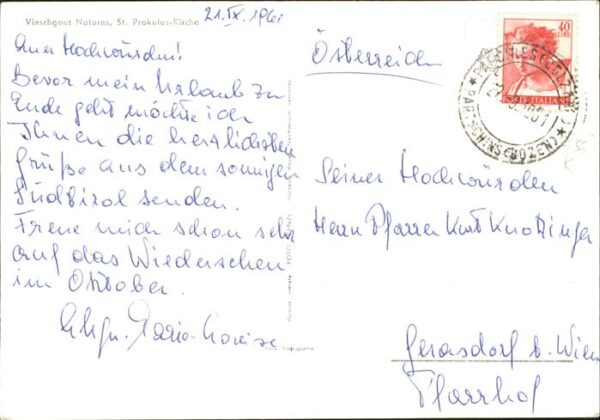 Vinschgau Naturns, St. Prokulus-Kirche
21.IX.1961
Euer Hochwürden!
Bevor mein Urlaub zu
Ende geht möchte ich
Ihnen die herzlichsten
Grüße aus dem sonnigen
Südtirol senden.
Freue mich schon sehr
auf das Wiedersehen
im Oktober.
Maria-Louise
Österreich
40
LIRE
POSTE ITALIANE
Seiner Hochwürden
Herrn Pfarrer Kurt Knotzinger
Gerasdorf b. Wien
Pfarrhof